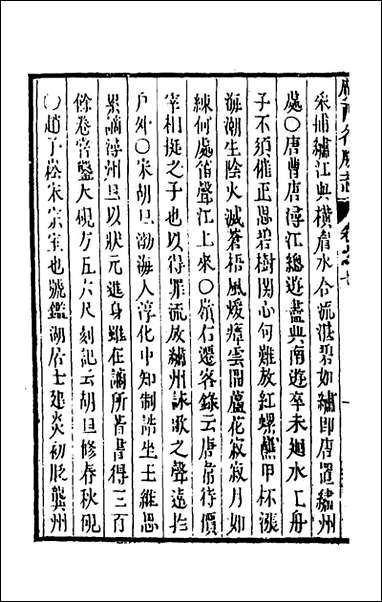 采捕繡江與橫䲧水合流湛碧如繡卽唐置繡州
處○唐曹唐潯江總遊盡與南遊卒未迴水工舟
子不須催正思碧樹關心何難放紅螺蘸甲杯漲
海潮生陰火滅蒼梧風煖瘴雲開蘆花寂寂月如
練何處笛聲江上來○嶺石遷客錄云唐前待價
宰相挺之子也以得罪流放繡州詠歌之聲遠
戶外○宋胡旦渤海人淳化中知制誥坐王維恩
累謫潯州旦以狀元進身雖在謫所昔書得三百
餘卷嘗鑿大硯方五六尺刻記云胡旦修春秋硯
○趙子崧宋宗室也號鑑湖居士建炎初貶龔州